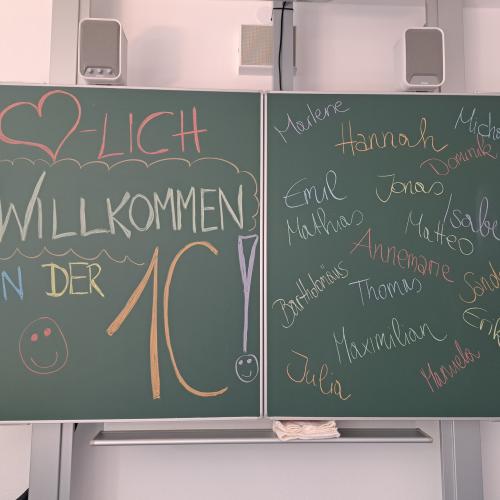 ♥-LICH
WILLKOMMEN
N DER 1C!
Marlene
Hannah
Micha
Dominik
Emil
Jonas
Mathias
Matteo
Isabe
Annemarie
Bartholomäus
Thomas
Sand
Maximilian
Erik
Julia
Manuela